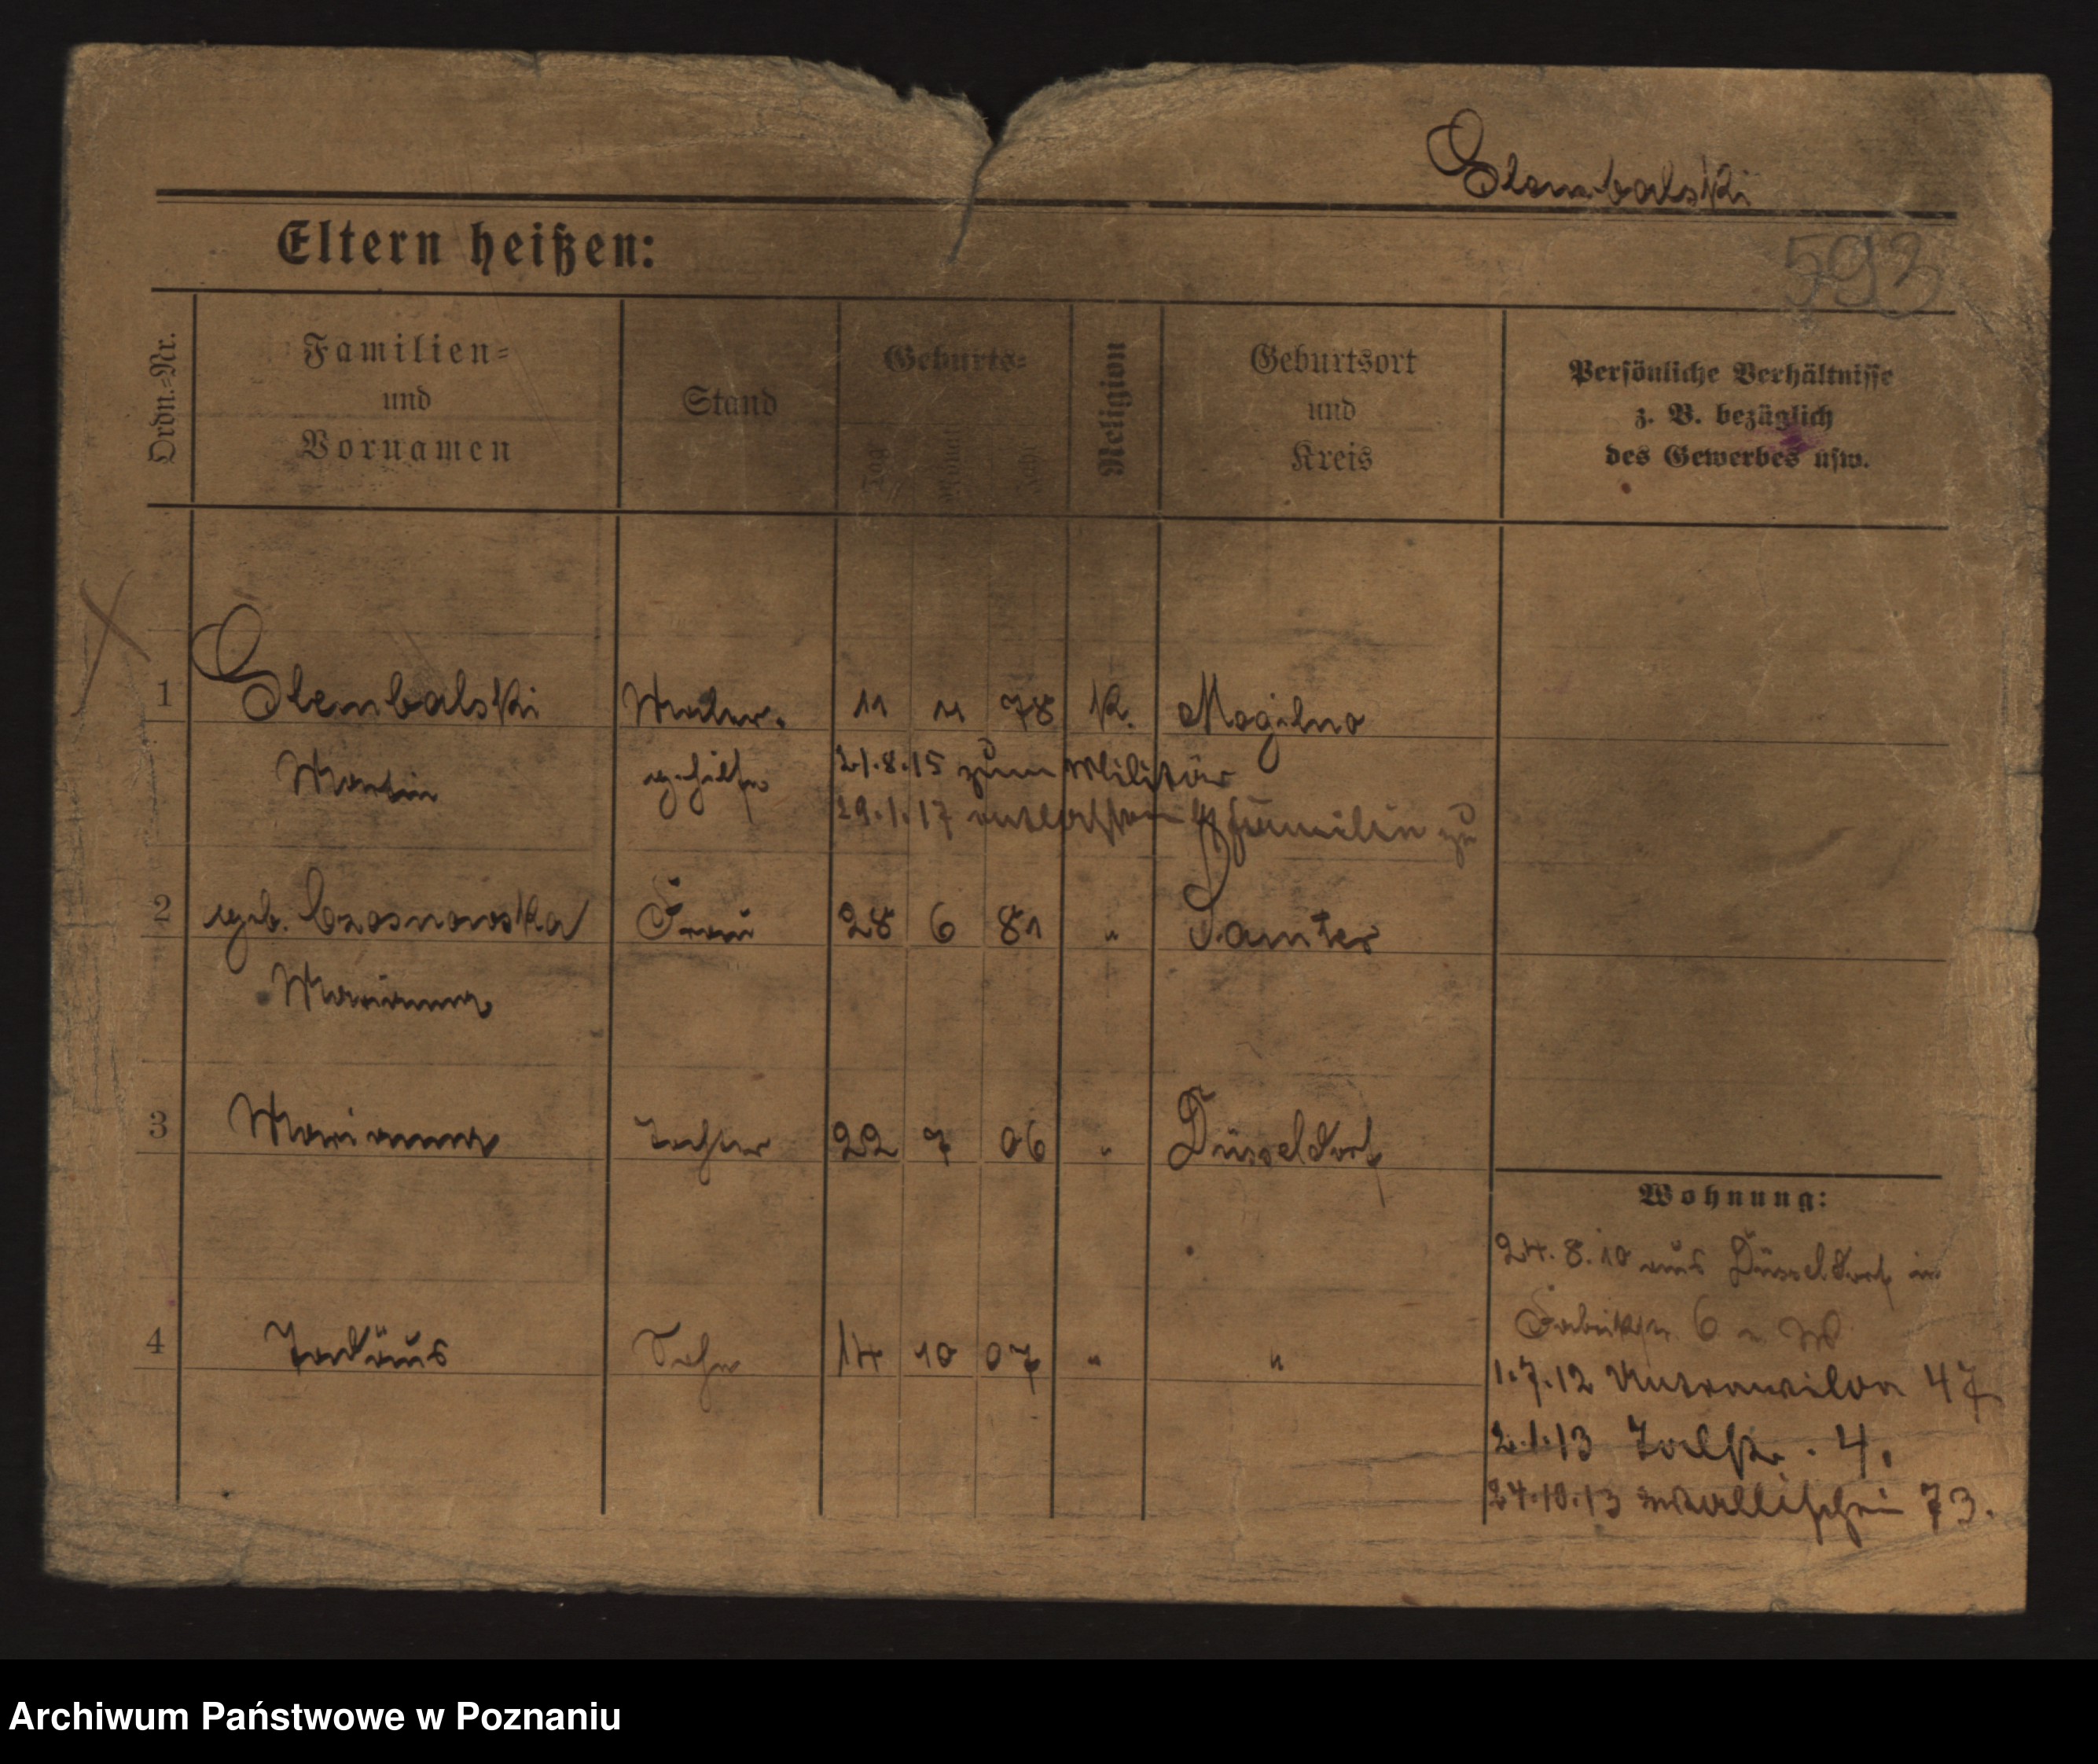 Slembalski
Eltern heißen:
593
Ordn.=Nr.
Familien=
und
Vornamen
Stand
Geburts=
Tag
Monat
Jahr
Religion
Geburtsort
und
Kreis
Persönliche Verhältnisse
z. B. bezüglich
des Gewerbes usw.
1 Slembalski Maler. 11 11 78 K. Mogilno
Martin gehilfe 21.8.15 zum Militär
29.1.17 entlassen Familie zu
2 geb. Czosnowska Frau 28 6 81 " Samter
Marianna
3 Marianna Tochter 22 7 06 " Düsseldorf
Wohnung:
24.8.10 aus Düsseldorf in
Fabrikstr 6
4 Tadäus Sohn 14 10 07 " "
1.7.12 Unterwilda 47
2.1.13 Talstr. 4.
24.10.13 Wallischei 73.
Archiwum Państwowe w Poznaniu